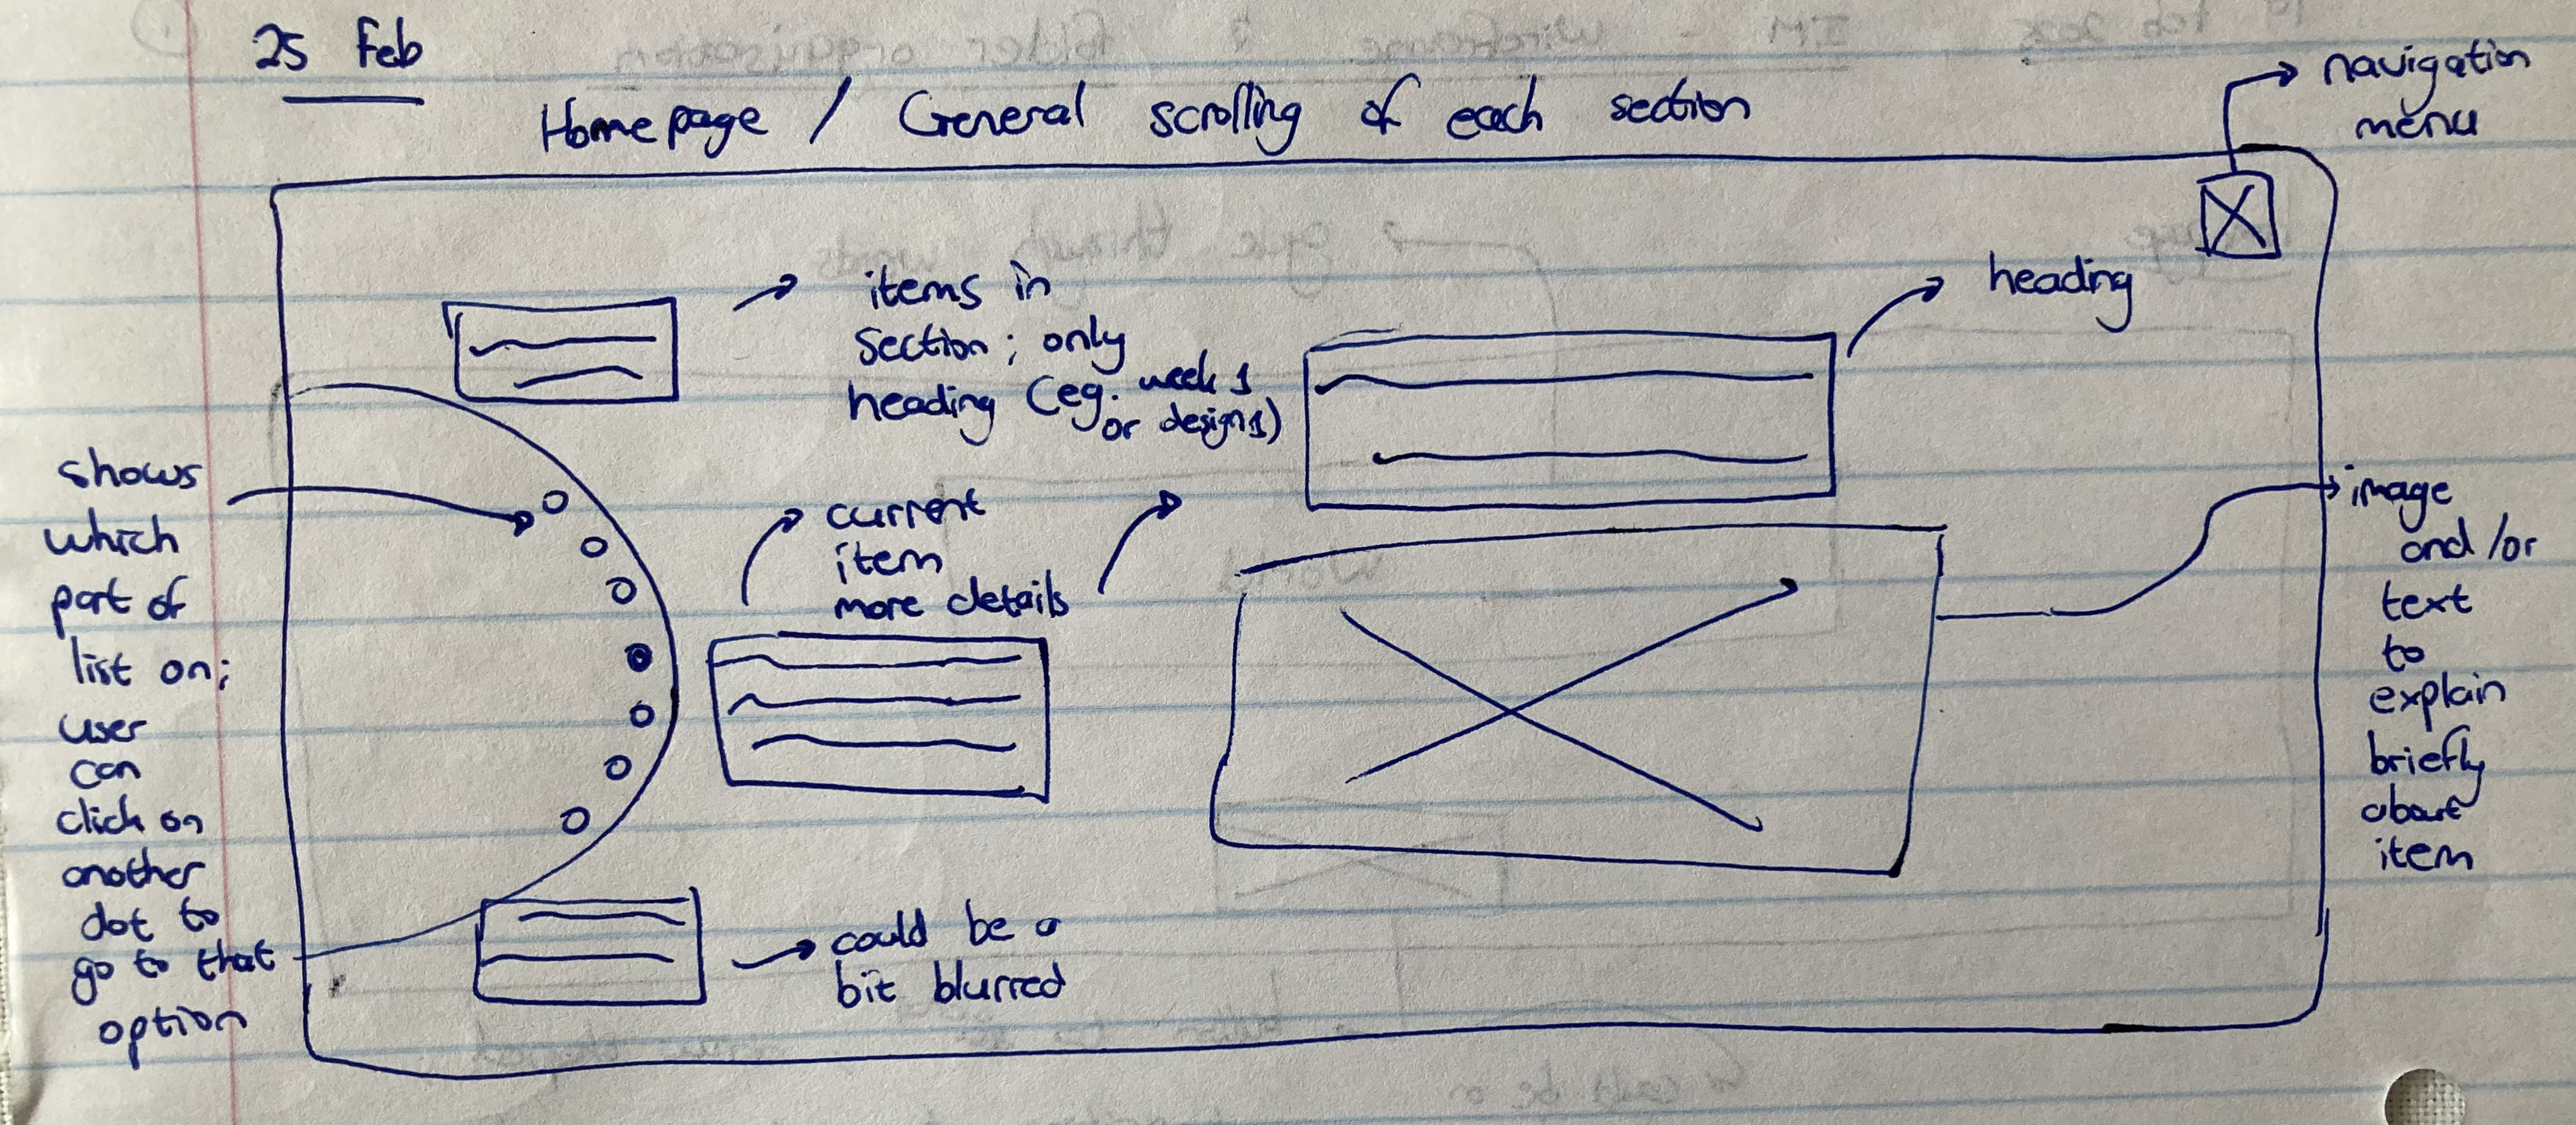 25 Feb
Homepage / General scrolling of each section
navigation
menu
items in
section; only
heading (eg. week 1
or design 1)
heading
shows
which
part of
list on;
user
can
click on
another
dot to
go to that
option
current
item
more details
image
and/or
text
to
explain
briefly
about
item
could be a
bit blurred